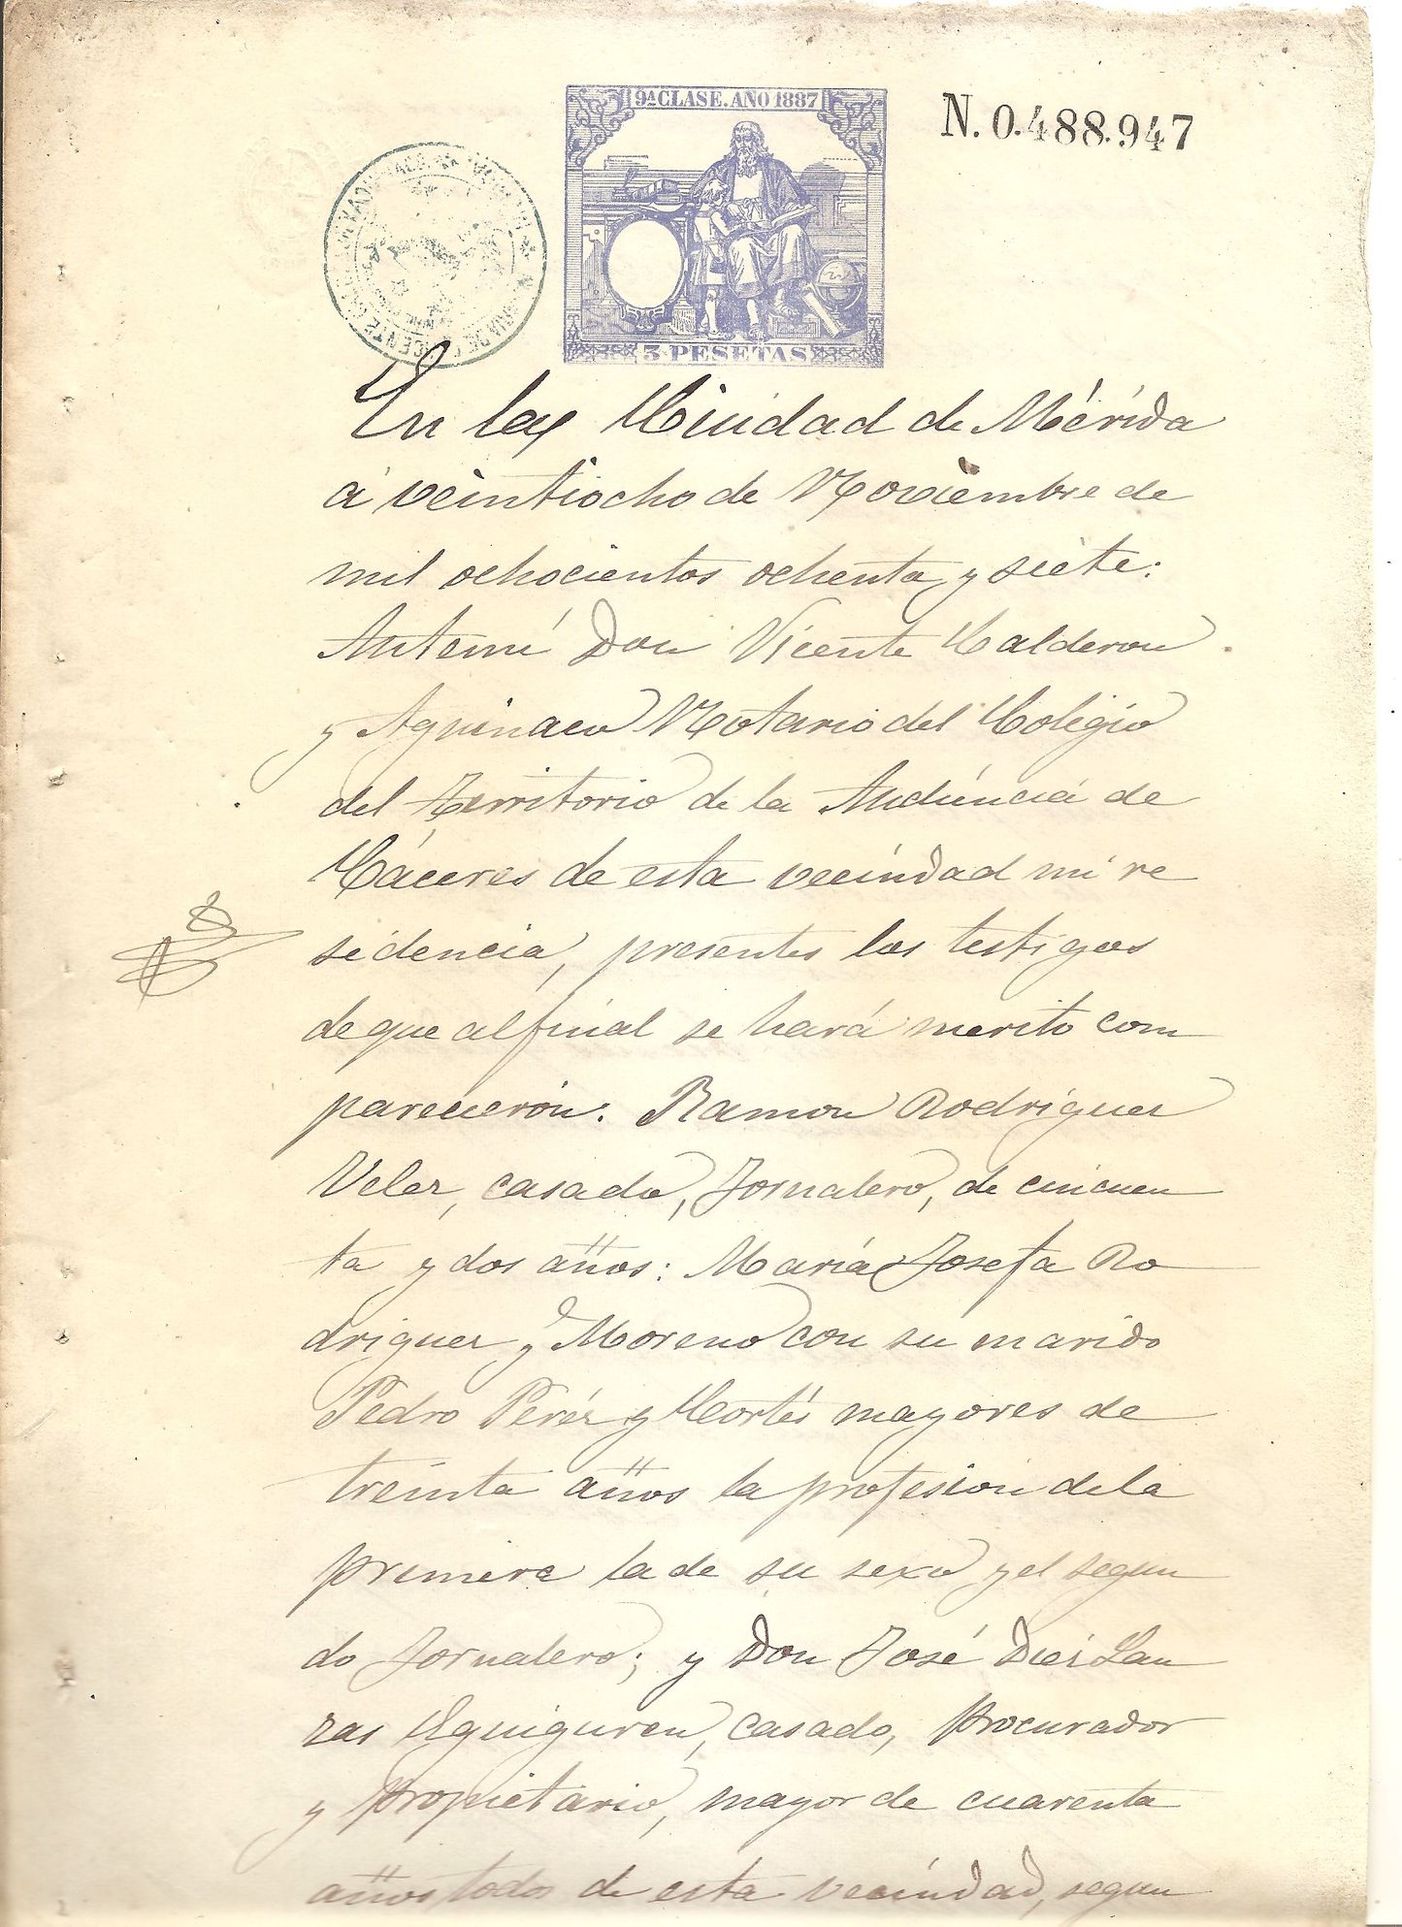 9ª CLASE. AÑO 1887
N. 0.488.947
3 PESETAS
En la Ciudad de Mérida
á veintiocho de Noviembre de
mil ochocientos ochenta y siete:
Antemí Don Vicente Calderon
y Aguinaco Notario del Colegio
del Territorio de la Audiéncia de
Cáceres de esta vecindad mi re
sidencia, presentes los testigos
de que al final se hará merito com
parecieron: Ramon Rodriguez
Velez, casado, Jornalero, de cincuen
ta y dos años: María Josefa Ro
driguez y Moreno con su marido
Pedro Peréz y Cortés mayores de
treinta años la profesion dela
primera la de su sexo y el segun
do Jornalero; y Don José Diéz Lan
zas Eguiguren, casado, Procurador
y propietario, mayor de cuarenta
años todos de esta vecindad, segun